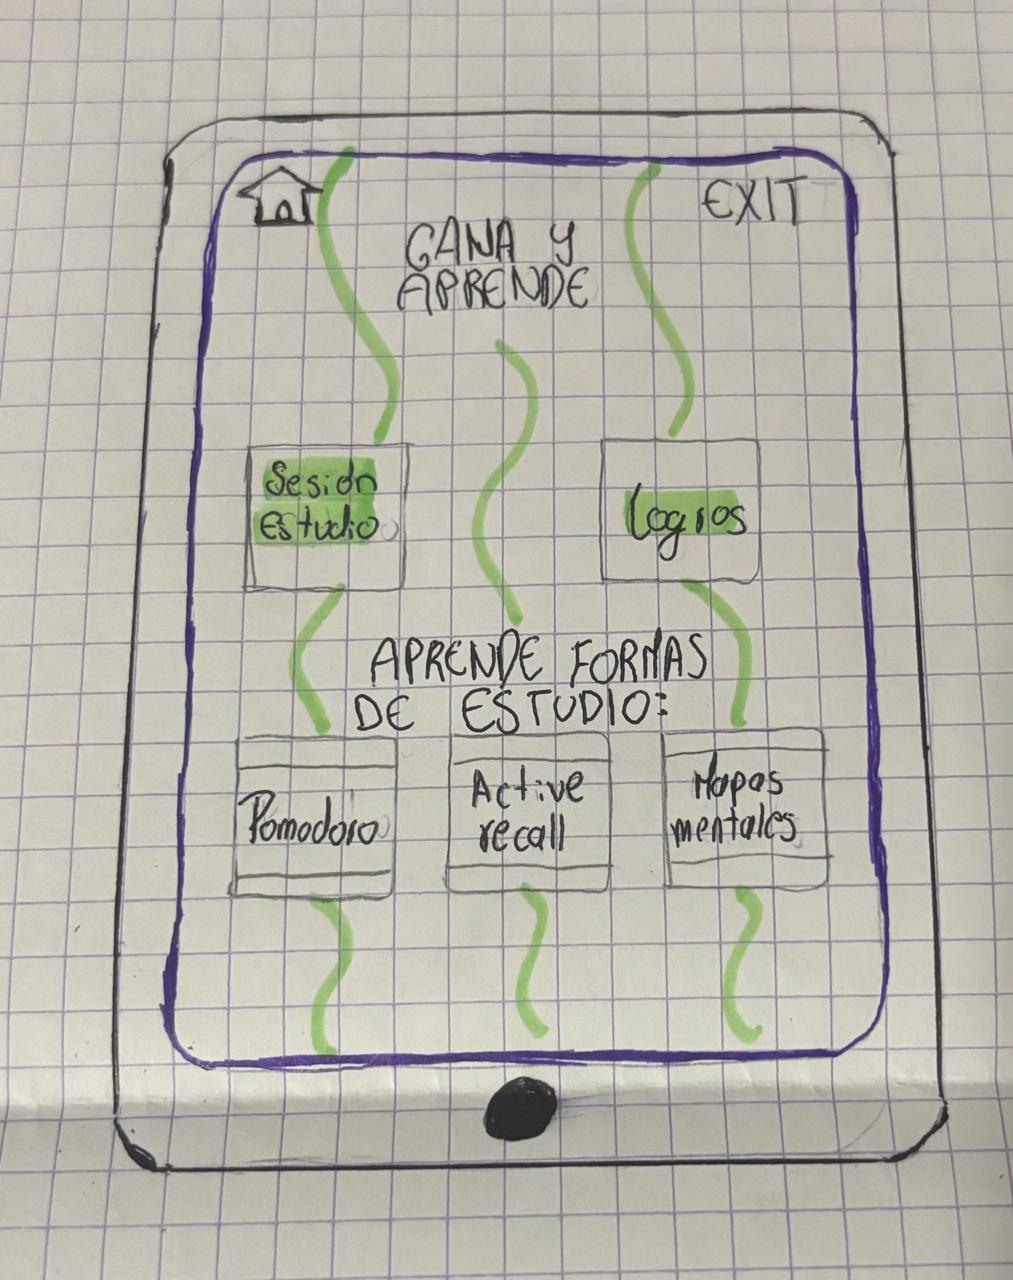 EXIT
GANA Y
APRENDE
Sesión
Estudio
Logros
APRENDE FORMAS
DE ESTUDIO:
Pomodoro
Active
recall
Mapas
mentales